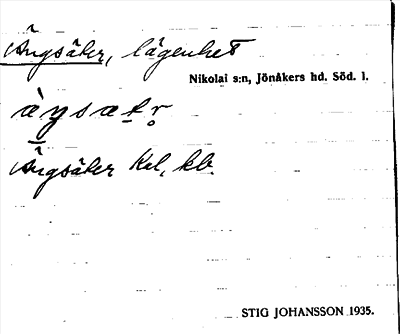 Ängsåker, lägenhet
Nikolai s:n, Jönåkers hd. Söd. l.
Ängsåker Kal, kb.
STIG JOHANSSON 1935.